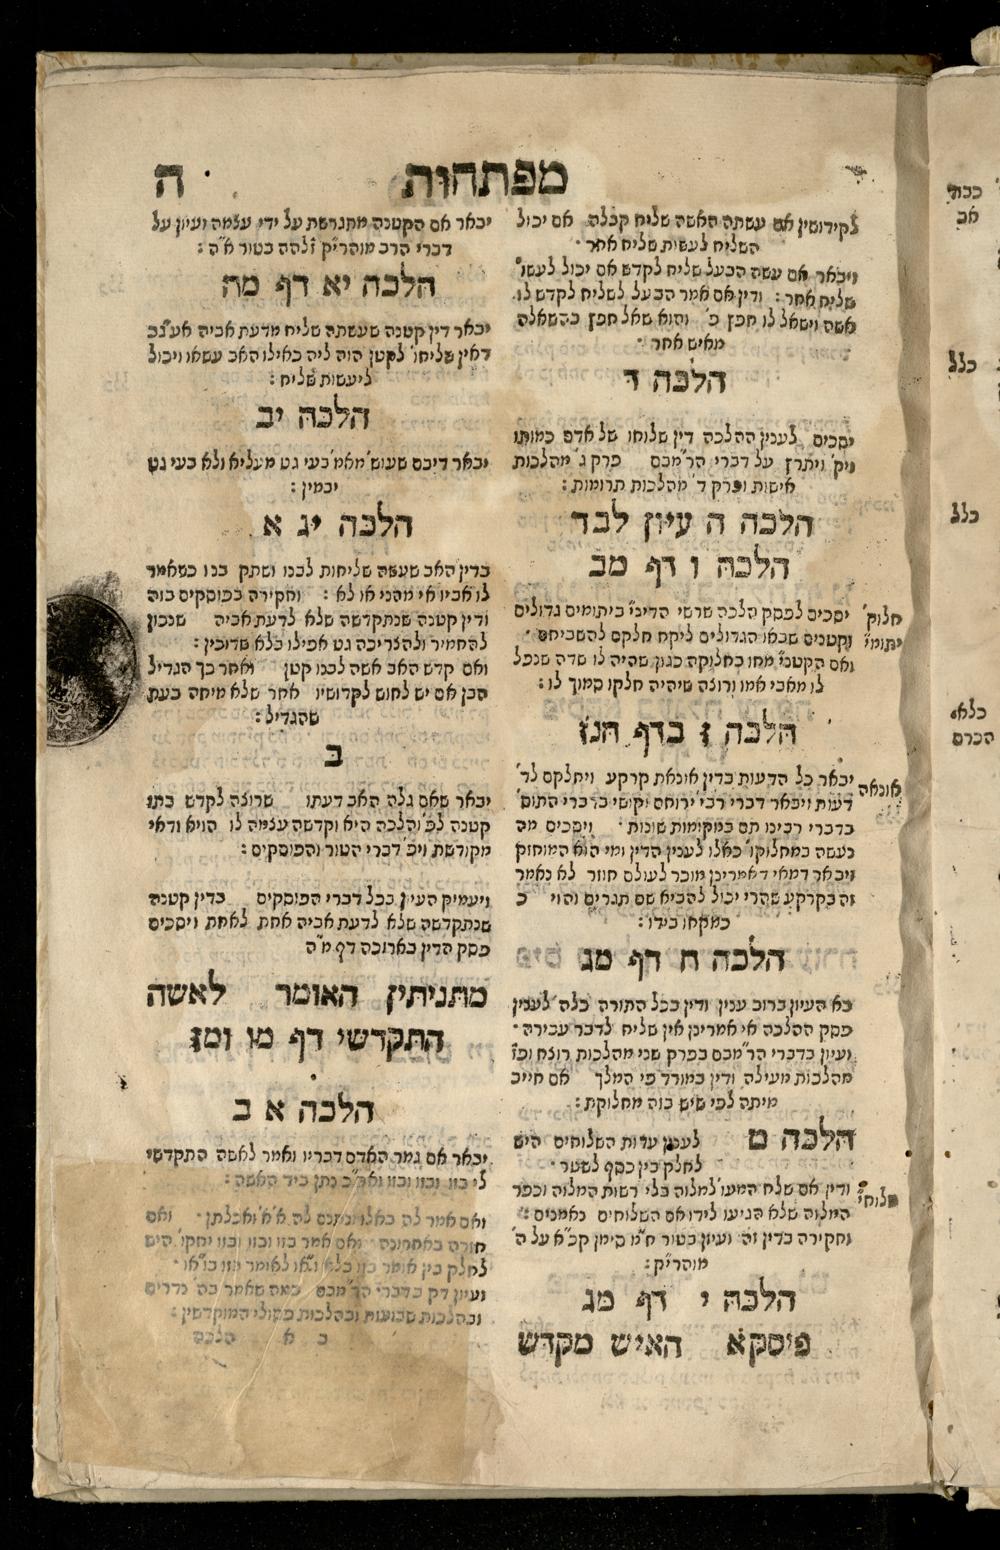 מפתחות
ה
לקידושין אם עשתה האשה שליח קבלה אם יכול
השליח לעשות שליח אחר
ויבאר אם עשה הבעל שליח לקדש אם יכול לעשו'
שליח אחר: ודין אם אמר הבעל לשליח לקדש לו
אשה וישאל לו חפץ פ' והוא שאל חפץ בהשאלה
מאיש אחר
הלכה ד
יסכים לענין ההלכה דין שלוחו של אדם כמותו
ויק' ויתרץ על דברי הר"מבם פרק ג' מהלכות
אישות ופרק ד' מהלכות תרומות:
הלכה ה עיון לבד
הלכה ו דף מב
חלוק'
יתומי'
יסכים לפסק הלכה שרשי הדיני' ביתומים גדולים
וקטנים שבאו הגדולים ליקח חלקם להשביחם
ואם הקטני' מחו בחלוקה כגון שהיה לו שדה שנפל
לו מאבי אמו ורוצה שיהיה חלקו סמוך לו:
הלכה ז בדף הנז
אונאה
יבאר כל הדעות בדין אונאת קרקע ויחלקם לד'
דעות ויבאר דברי רבי' ירוחם וקושי' בדברי התוס'
בדברי רבינו תם במקומות שונות ויסכים מה
נעשה במחלוקו' כאלו לענין הדין ומי הוא המוחזק
ויבאר דמאי דאמרינן מוכר לעולם חוזר לא נאמר
זה בקרקע שהרי יכול להביא שם תגרים והוי כ
כמקחו בידו:
הלכה ח דף מג
בא העיון ברוב ענין ודין בכל התורה כלה לענין
פסק ההלכה אי אמרינן אין שליח לדבר עבירה
ועיון בדברי הר"מבם בפרק שני מהלכות רוצח ופ"ז
מהלכות מעילה ודין במורד פי המלך אם חייב
מיתה לפי שיש בזה מחלוקת:
הלכה ט לענין עדות השלוחים היש
לחלק בין כסף לשטר
שלוחי'
ודין אם שלח המעו' למלוה בלי רשות המלוה וכפר
המלוה שלא הגיעו לידו אם השלוחים נאמנים:
וחקירה בדין זה ועיון בטור ח"מ סימן קכ"א על ה'
מוהרי"ק:
הלכה י דף מג
פיסקא האיש מקדש
יבאר אם הקטנה מתגרשת על ידי עצמה ועיון על
דברי הרב מוהרי"ק זלהה בטור א"ה:
הלכה יא דף מה
יבאר דין קטנה שעשתה שליח מדעת אביה אע"גב
דאין שליחו' לקטן הוה ליה כאילו האב עשאו ויכול
ליעשות שליח:
הלכה יב
יבאר דיבם שעש' מאמ' בעי גט מעליא ולא בעי גט
יבמין:
הלכה יג א
בדין האב שעשה שליחות לבנו ושתק בנו כשאמר
לו אביו אי מהני או לא: וחקירה בפוסקים בזה
ודין קטנה שנתקדשה שלא לדעת אביה שנכון
להחמיר ולהצריכה גט אפילו בלא שדוכין:
ואם קדש האב אשה לבנו קטן ואחר כך הגדיל
הבן אם יש לחוש לקדושיו אחר שלא מיחה בעת
שהגדיל:
ב
יבאר שאם גלה האב דעתו שרוצה לקדש בתו
קטנה לפ' והלכה היא וקדשה עצמה לו הויא ודאי
מקודשת ויפ' דברי הטור והפוסקים:
ויעמיק העיון בכל דברי הפוסקים בדין קטנה
שנתקדשה שלא לדעת אביה אחת לאחת ויסכים
פסק הדין בארוכה דף מ"ה
מתניתין האומר לאשה
התקדשי דף מו ומז
הלכה א ב
יבאר אם גמר האדם דבריו ואמר לאשה התקדשי
לי בזו ובזו ובזו ואח"כ נתן ביד האשה:
ואם אמר לה באלו ונתנם לה א'א' ואכלתן ואם
חזרה באחרונה ואם אמר בזו ובזו ובזו יחקו' היש
לחלק בין אומר בזו בלא וא"ו לאומר וזו בוא"ו
ועיון דק בדברי הר"מבם במה שאמר בה' נדרים
ובהלכות שבועות ובהלכות פסולי המוקדשין:
ב א הלכה
כלל
כלל
הכרם